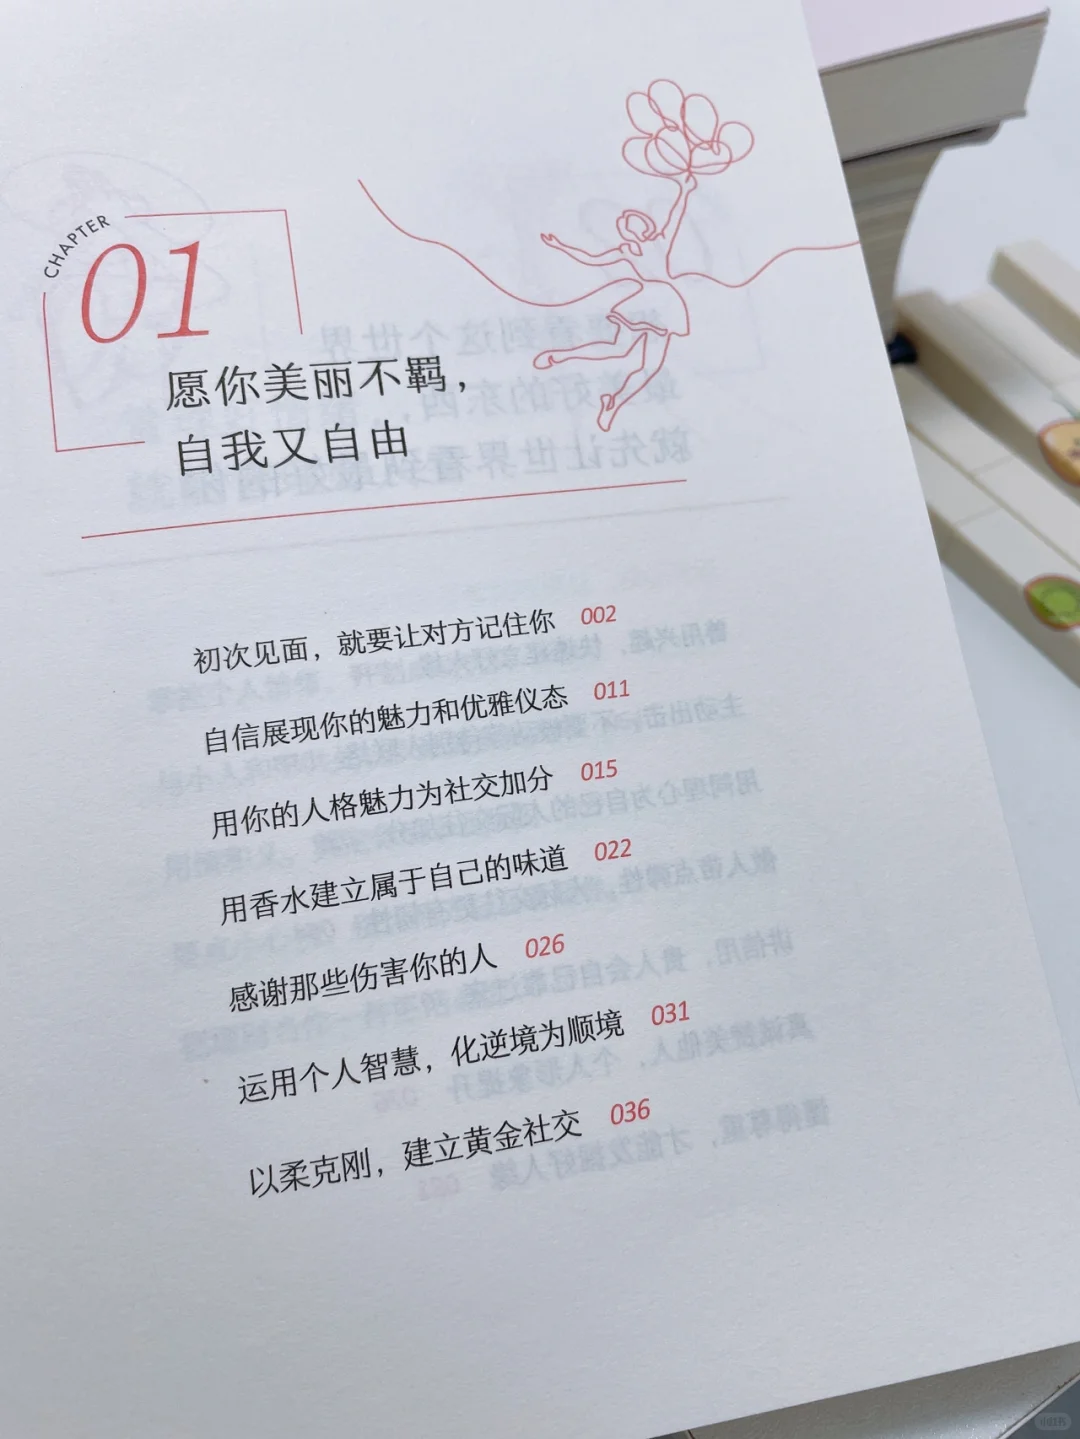 CHAPTER
01
愿你美丽不羁，
自我又自由
初次见面，就要让对方记住你 002
自信展现你的魅力和优雅仪态 011
用你的人格魅力为社交加分 015
用香水建立属于自己的味道 022
感谢那些伤害你的人 026
运用个人智慧，化逆境为顺境 031
以柔克刚，建立黄金社交 036